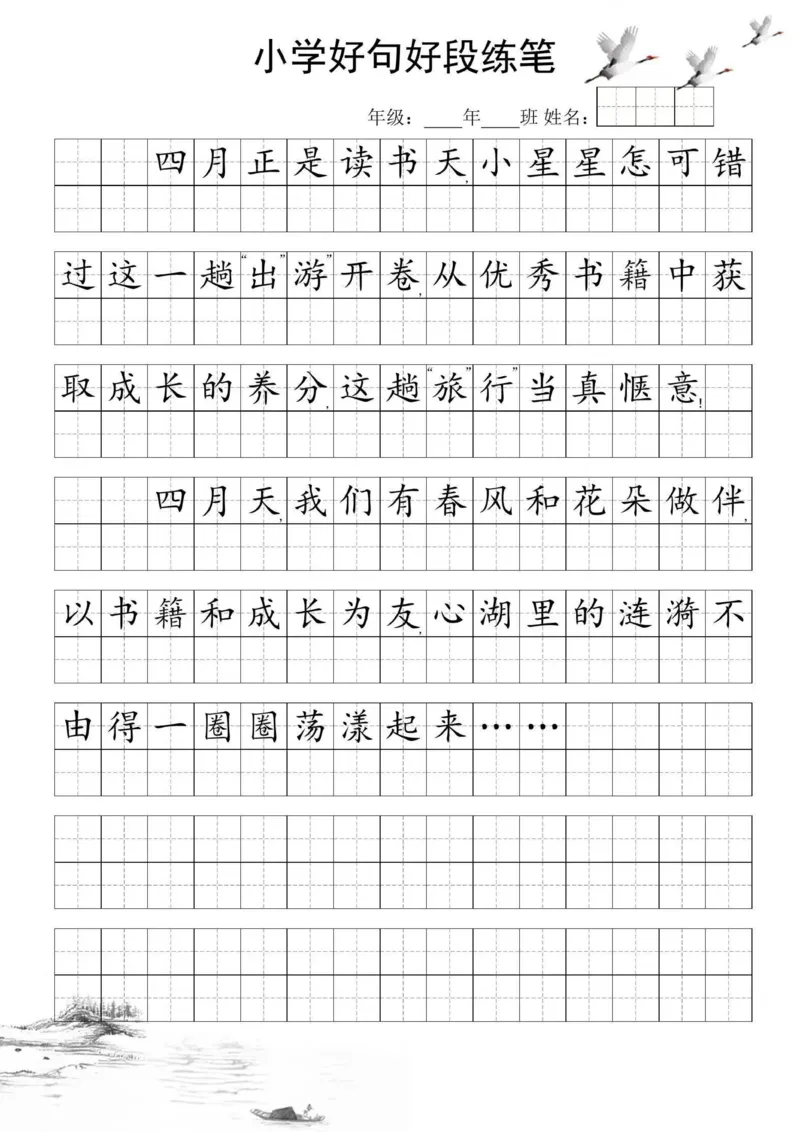 小学好句好段练笔
年级：____年____班 姓名：
四月正是读书天,小星星怎可错
过这一趟“出”“游”开卷,从优秀书籍中获
取成长的养分,这趟“旅”“行”当真惬意!
四月天,我们有春风和花朵做伴,
以书籍和成长为友,心湖里的涟漪不
由得一圈圈荡漾起来……